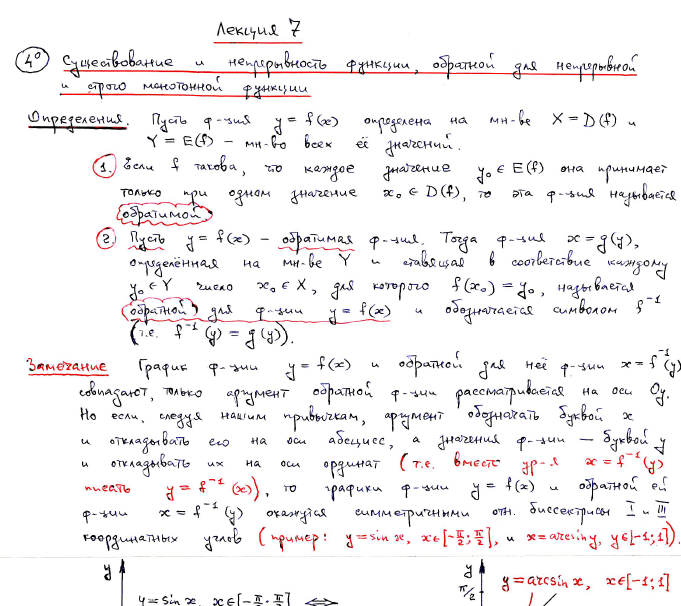 Лекция 7
4° Существование и непрерывность функции, обратной для непрерывной
и строго монотонной функции
Определения. Пусть ф-ция y = f(x) определена на мн-ве X = D(f) и
Y = E(f) – мн-во всех её значений.
1. Если f такова, что каждое значение y₀ ∈ E(f) она принимает
только при одном значение x₀ ∈ D(f), то эта ф-ция называется
обратимой.
2. Пусть y = f(x) – обратимая ф-ция. Тогда ф-ция x = g(y),
определённая на мн-ве Y и ставящая в соответствие каждому
y₀ ∈ Y число x₀ ∈ X, для которого f(x₀) = y₀, называется
обратной для ф-ции y = f(x) и обозначается символом f⁻¹
(т.е. f⁻¹(y) = g(y)).
Замечание График ф-ции y = f(x) и обратной для неё ф-ции x = f⁻¹(y)
совпадают, только аргумент обратной ф-ции рассматривается на оси Oy.
Но если, следуя нашим привычкам, аргумент обозначать буквой x
и откладывать его на оси абсцисс, а значения ф-ции – буквой y
и откладывать их на оси ординат (т.е. вместо ур-я x = f⁻¹(y)
писать y = f⁻¹(x)), то графики ф-ции y = f(x) и обратной ей
ф-ции x = f⁻¹(y) окажутся симметричными отн. биссектрисы I и III
координатных углов (пример: y = sin x, x ∈ [-π/2; π/2], и x = arcsin y, y ∈ [-1; 1]).
y
y = sin x, x ∈ [-π/2; π/2] ⟺
y
π/2
y = arcsin x, x ∈ [-1; 1]